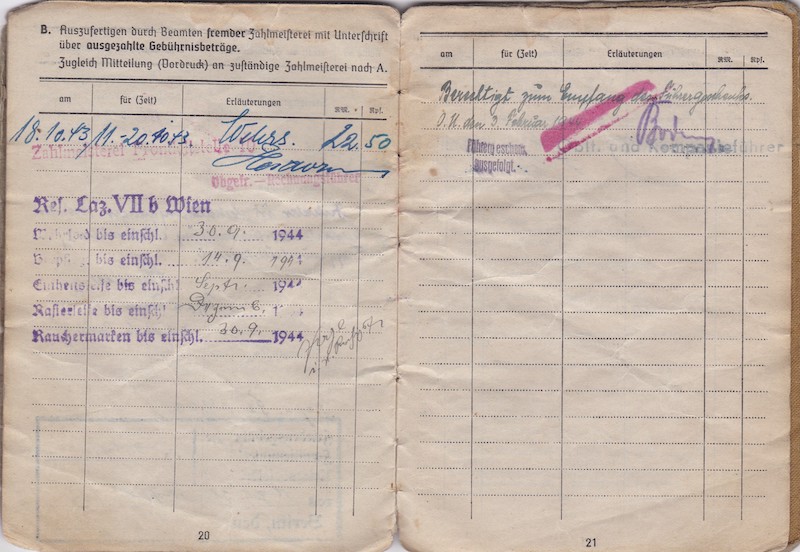 B. Auszufertigen durch Beamten fremder Zahlmeisterei mit Unterschrift
über ausgezahlte Gebührnisbeträge.
Zugleich Mitteilung (Vordruck) an zuständige Zahlmeisterei nach A.
am für (Zeit) Erläuterungen RM. Rpf.
18.10.43 11.-20.10.43 Wehrs. 22.50
Zahlmeisterei
Obgefr. Rechnungsführer
Res. Laz. VII b Wien
bis einschl. 30.9. 1944
bis einschl. 14.9. 1944
Einheitsseife bis einschl. Sept. 194
Rasierseife bis einschl. Dezemb.
Rauchermarken bis einschl. 30.9. 1944
20
am für (Zeit) Erläuterungen RM. Rpf.
Berechtigt zum Empfang des Führergeschenks.
O.U. den 3. Februar
Führergeschenk
ausgefolgt.
und Kompanieführer
21